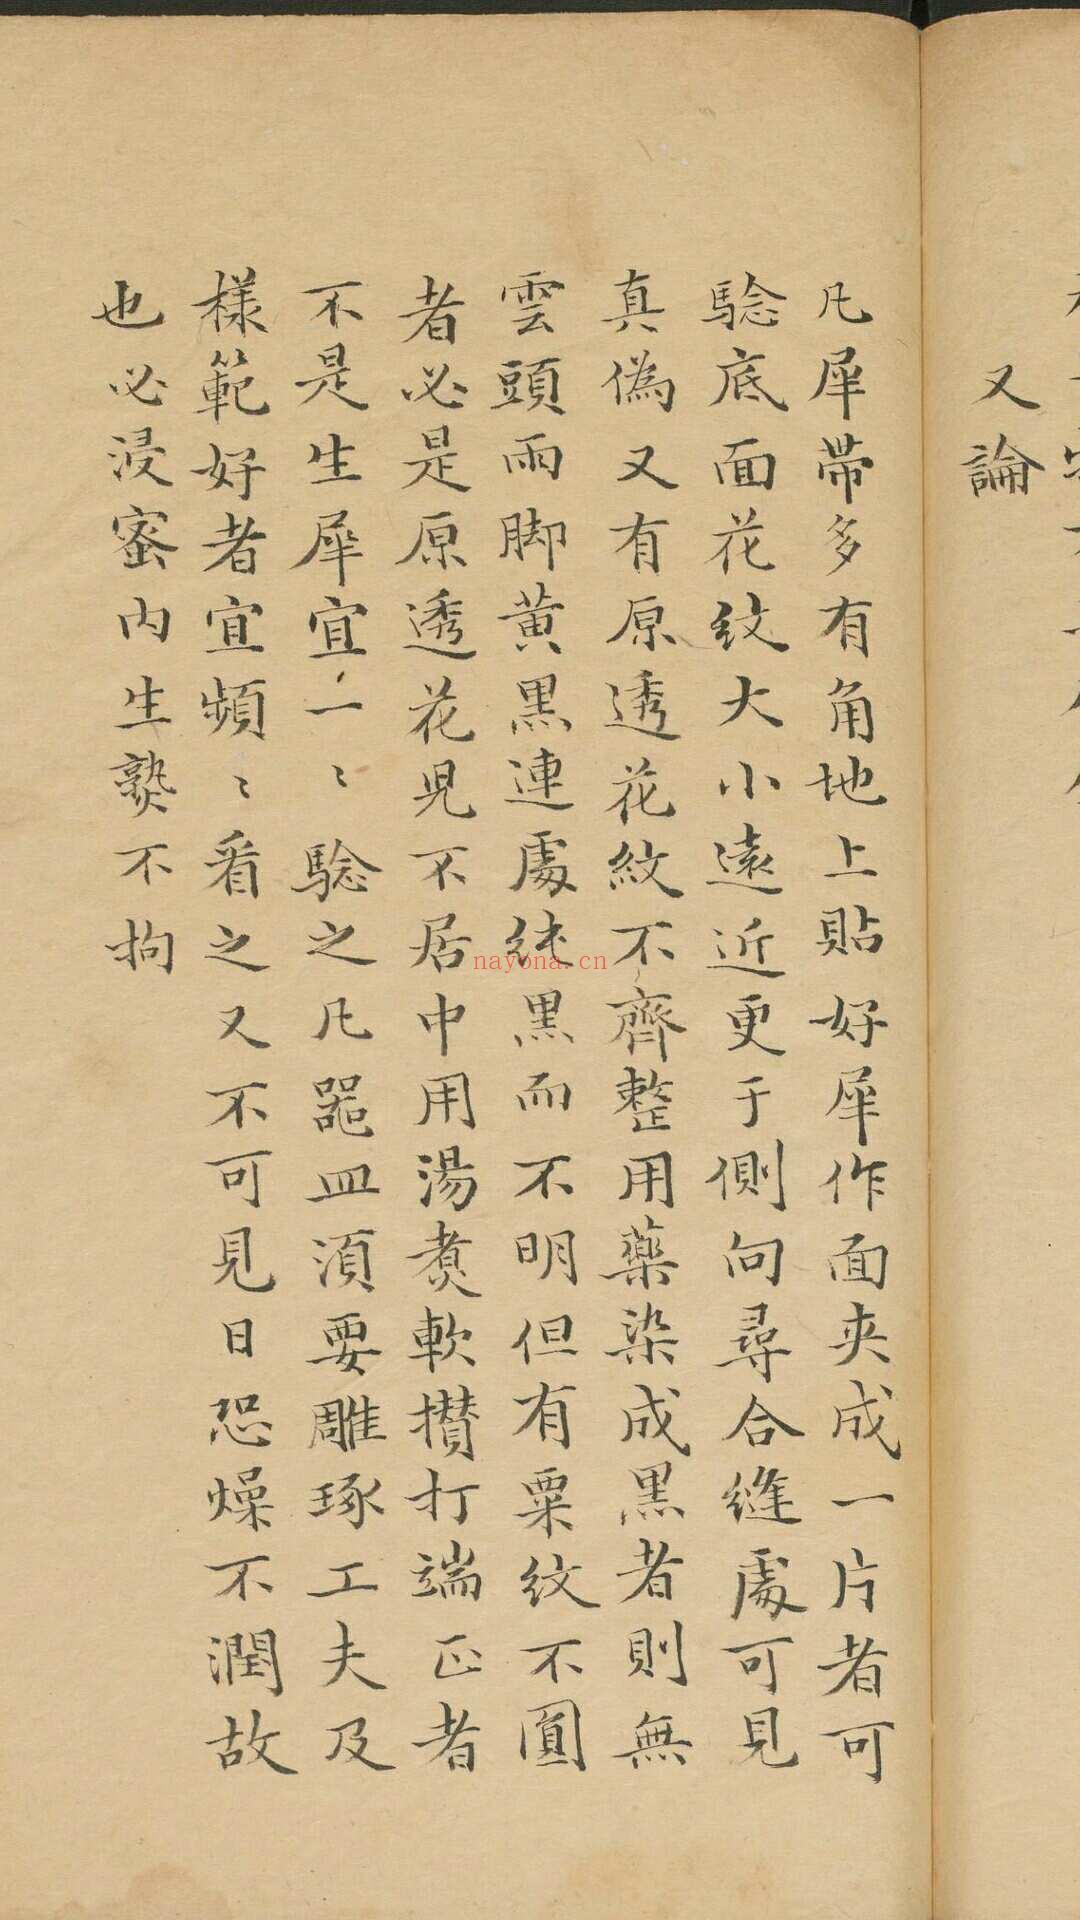 又論
凡犀帶多有角地上貼好犀作面夾成一片者可
騐底面花紋大小遠近更于側向尋合縫處可見
真偽又有原透花紋不齊整用藥染成黑者則無
雲頭雨脚黃黒連處純黒而不明但有粟紋不圓
者必是原透花見不居中用湯煮軟攅打端正者
不是生犀宜一〻騐之凡器皿湏要雕琢工夫及
樣範好者宜頻〻看之又不可見日恐燥不潤故
也必浸蜜内生熟不拘
nayona.cn